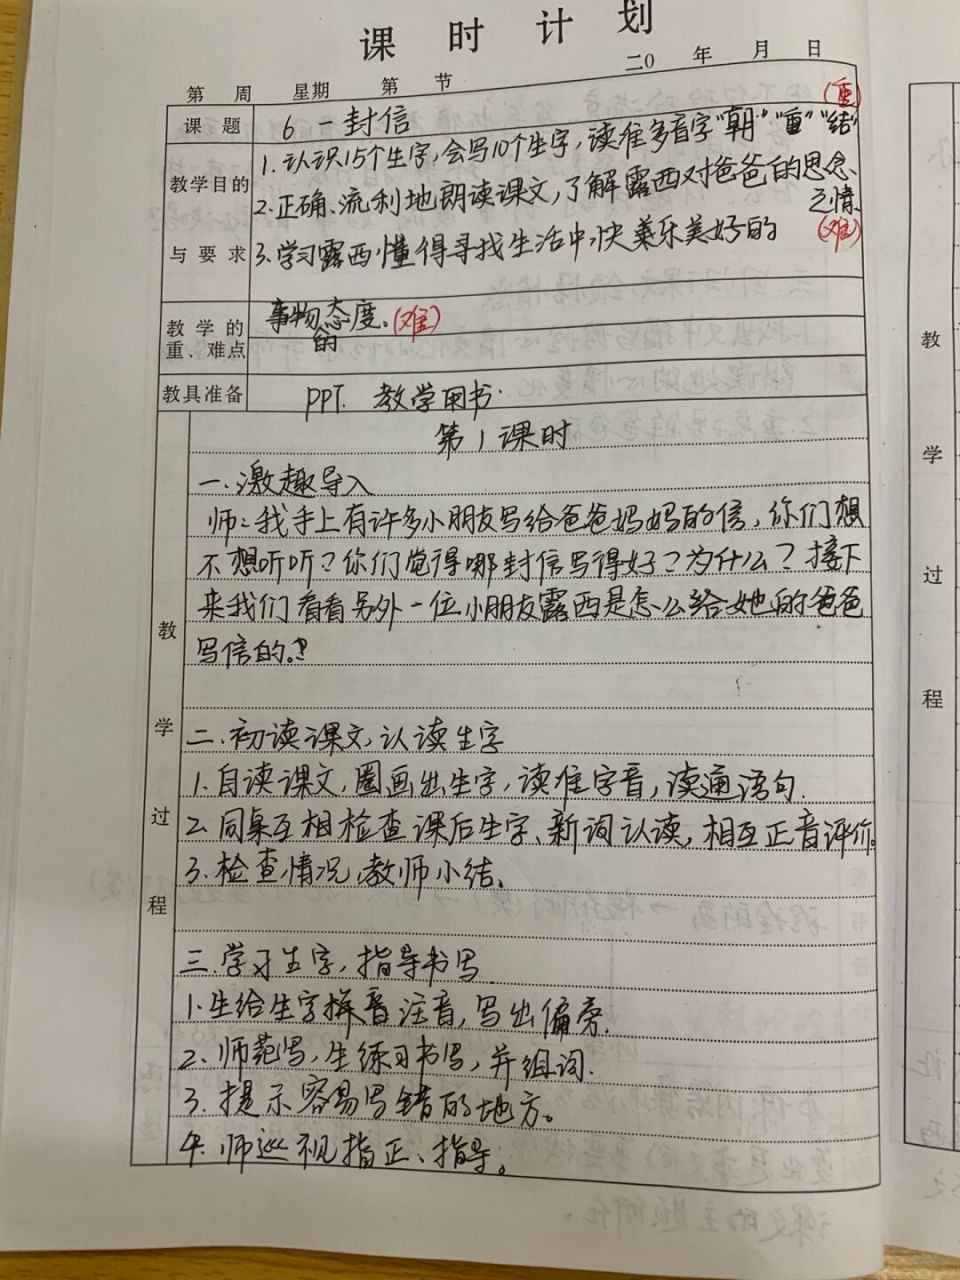 课 时 计 划
二0 年 月 日
第 周 星期 第 节
课 题
6 一封信
(重)
教学目的
与 要 求
1.认识15个生字,会写10个生字,读准多音字"朝""重""结"
2.正确、流利地朗读课文,了解露西对爸爸的思念
之情.
(难)
3.学习露西,懂得寻找生活中快乐美好的
事物的态度.(难)
教 学 的
重、难点
教具准备
PPT. 教学用书.
第1课时
教 学 过 程
一.激趣导入
师:我手上有许多小朋友写给爸爸妈妈的信,你们想
不想听听?你们觉得哪封信写得好?为什么?接下
来我们看看另外一位小朋友露西是怎么给她的爸爸
写信的.
二.初读课文,认读生字
1.自读课文,圈画出生字,读准字音,读通语句.
2.同桌互相检查课后生字、新词认读,相互正音评价.
3.检查情况,教师小结.
三.学习生字,指导书写
1.生给生字拼音注音,写出偏旁.
2.师范写,生练习书写,并组词.
3.提示容易写错的地方。
4.师巡视指正、指导。
教
学
过
程